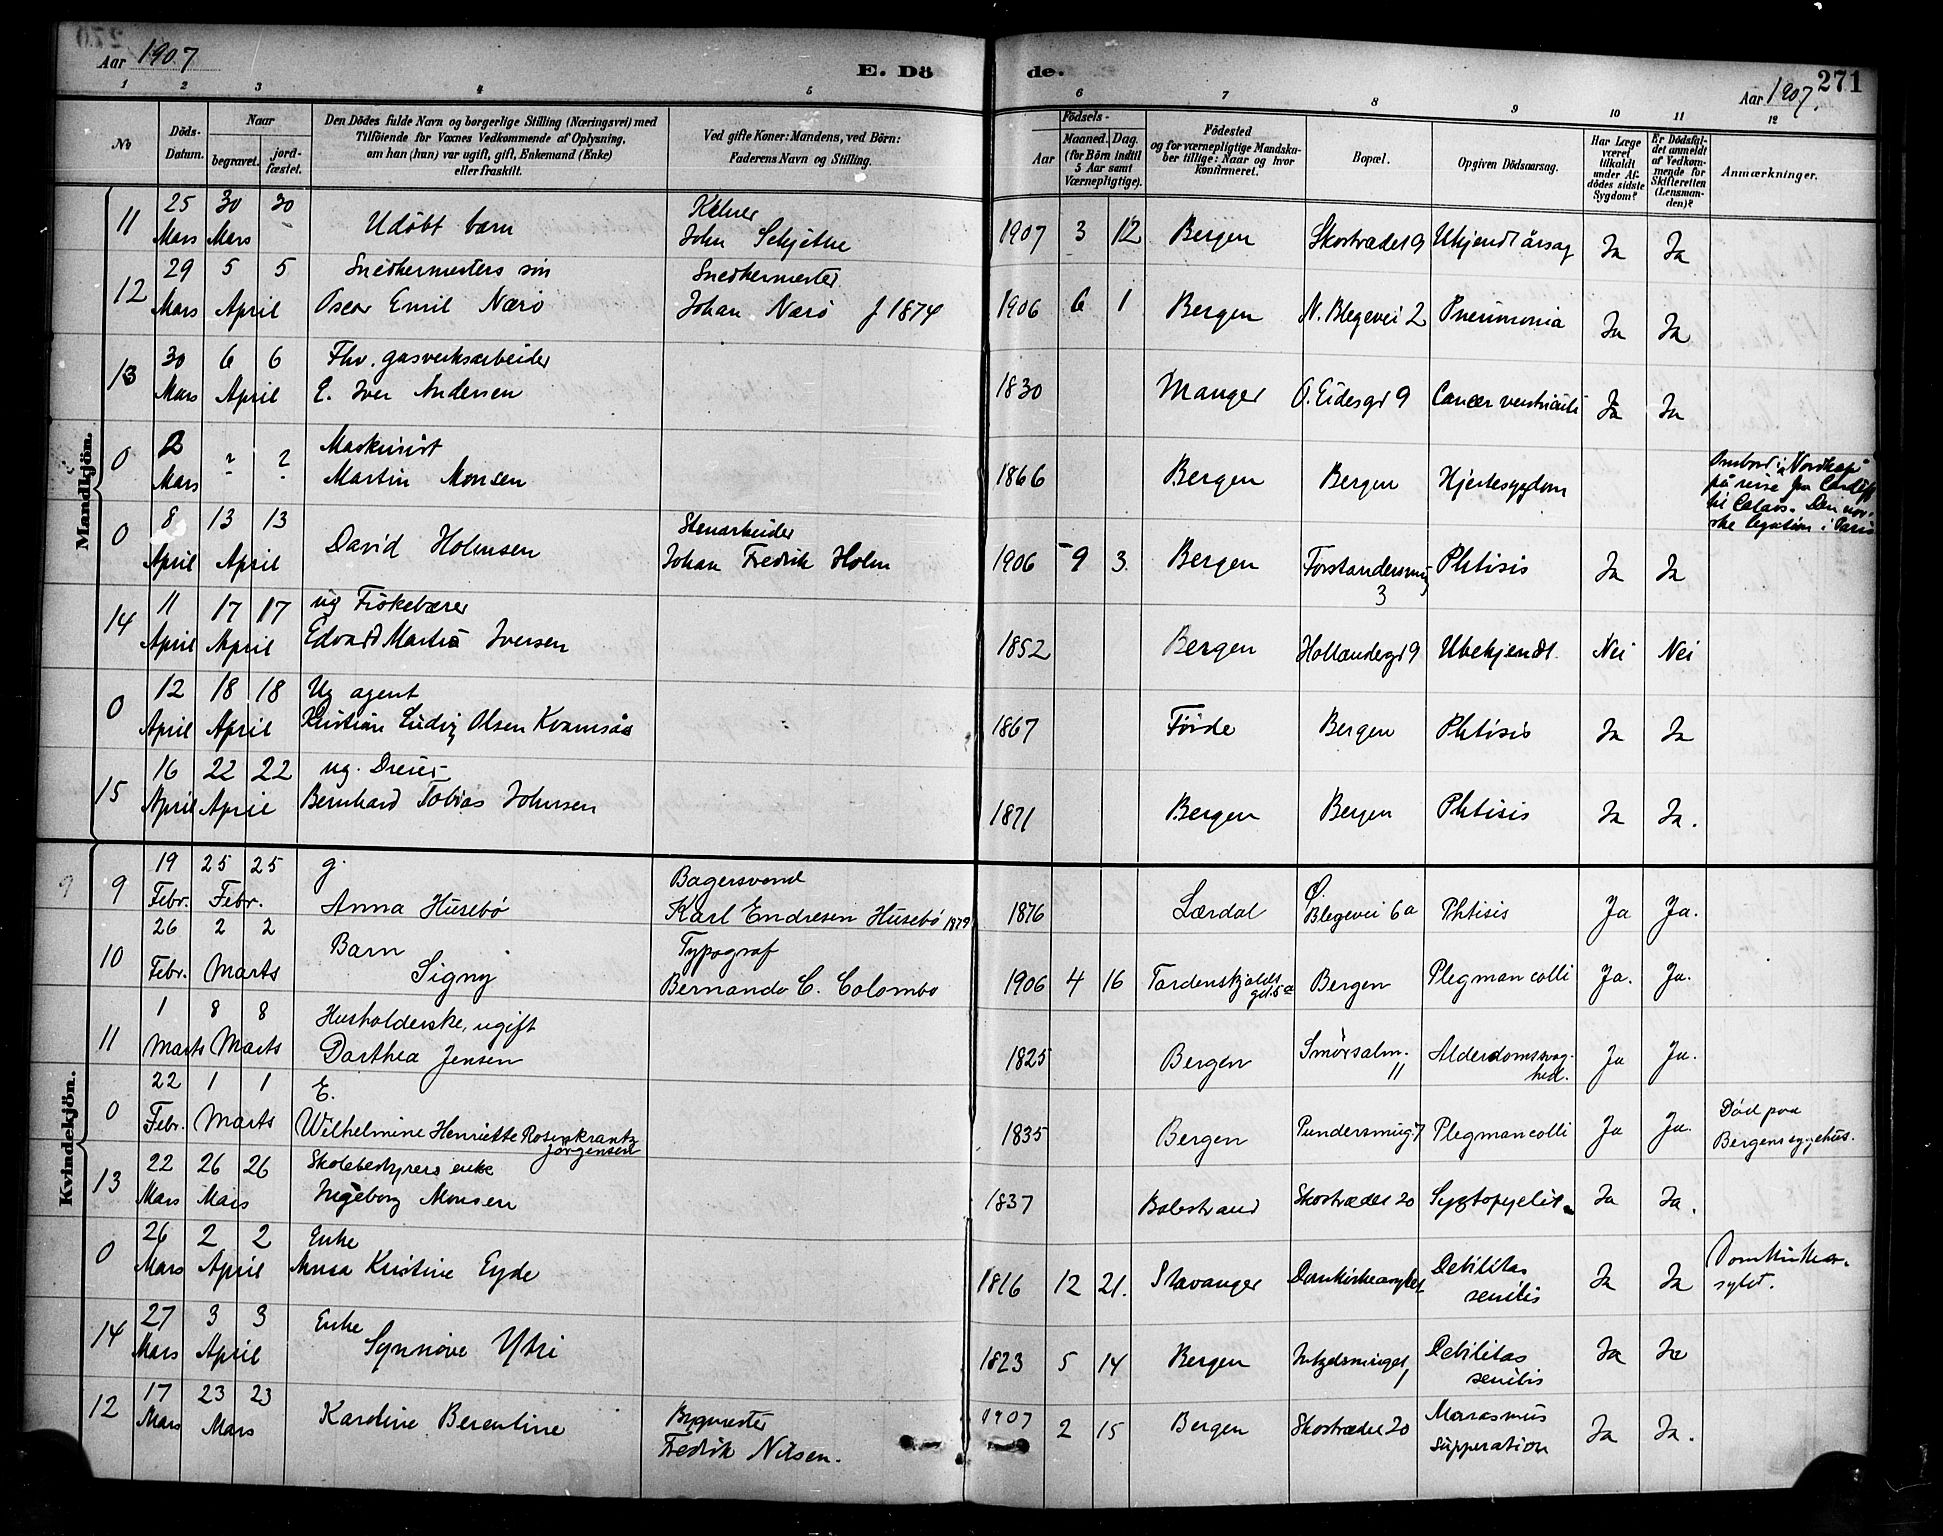 Aar 1907
E. Dö
de.
Aar 1907.
271
1 2 3 4 5 6 7 8 9 10 11 12
No
Döds-Datum.
Naar
begravet.
jord-fæstet.
Den Dödes fulde Navn og borgerlige Stilling (Næringsvei) med
Tilföiende for Voxnes Vedkommende af Oplysning,
om han (hun) var ugift, gift, Enkemand (Enke)
eller fraskilt.
Ved gifte Koner: Mandens, ved Börn:
Faderens Navn og Stilling.
Födsels-
Aar
Maaned. Dag.
(for Börn indtil
5 Aar samt
Værnepligtige).
Födested
og for værnepligtige Mandska-
ber tillige: Naar og hvor
konfirmeret.
Bopæl.
Opgiven Dödsaarsag.
Har Læge
været
tilkaldt
under Af-
dödes sidste
Sygdom?
Er Dödsfal-
det anmeldt
af Vedkom-
mende for
Skifteretten
(Lensman-
den)?
Anmærkninger.
Mandkjön.
11 25 Mars 30 Mars 30 Udöbt barn Kelner John 1907 3 12 Bergen Skostrædet 9 Ukjendt årsag Ja Ja
12 29 Mars 5 5 April Snedkermesters sön
Oscar Emil Nærö Snedkermester
Johan Nærö f 1874 1906 6 1 Bergen N. Blegevei 2 Pneumonia Ja Ja
13 30 Mars 6 6 April Fhv. gasverksarbeider
E. Iver Andersen 1830 Manger O. Eidesgd 9 Cancer ventriculi Ja Ja
0 2 Mars ? ? Maskinist
Martin Monsen 1866 Bergen Bergen Hjertesygdom
Ombord i "Nordkap"
på reise fra Cardiff
til Calais. Den nor-
ske legation i Paris
0 8 April 13 13 April David Holmsen Stenarbeider
Johan Fredrik Holm 1906 9 3. Bergen Forstandersmug
3 Phtisis Ja Ja
14 11 April 17 17 April ug Fiskebærer
Edvard Martin Iversen 1852 Bergen Hollendergd 9 Ubekjendt. Nei Nei
0 12 April 18 18 April Ug agent
Kristian Ludvig Olsen Kvamsås 1867 Förde Bergen Phtisis Ja Ja
15 16 April 22 22 April ug. Dreier
Bernhard Tobias Johnsen 1871 Bergen Bergen Phtisis Ja Ja.
Kvindekjön.
9 9 19 Febr. 25 25 Febr. g.
Anna Husebö Bagersvend
Karl Endresen Husebö 1879 1876 Lærdal Ö. Blegevei 6a Phtisis Ja Ja.
10 26 Febr. 2 2 Marts Barn
Signy Typograf
Bernando C. Colombo 1906 4 16 Tordenskjolds
gd. 5a Bergen Plegman colli Ja. Ja.
11 1 Marts 8 8 Marts Husholderske, ugift
Dorthea Jensen 1825 Bergen Smörsalm.
11 Alderdomssvag-
hed. Ja Ja.
0 22 Febr. 1 1 Marts E.
Wilhelmine Henriette Rosenkrantz
Jörgensen 1835 Bergen Pundersmug 7 Plegman colli Ja Ja.
Död paa
Bergens sygehus.
13 22 Mars 26 26 Mars Skolebestyrers enke
Ingeborg Monsen 1837 Balestrand Skostrædet 20 Ja Ja.
0 26 Mars 2 2 April Enke
Anna Kristine Eyde 1816 12 21. Stavanger Domkirkeasylet Debilitas
senilis Ja Ja
Domkirkea-
sylet.
14 27 Mars 3 3 April Enke
Synnöve Ytri 1823 5 14 Bergen
1 Debilitas
senilis Ja Ja
12 17 Mars 23 23 Mars Karoline Berentine Bygmester
Fredrik Nilsen. 1907 2 15 Bergen Skostrædet 20 Marasmus
Supperation Ja Ja.